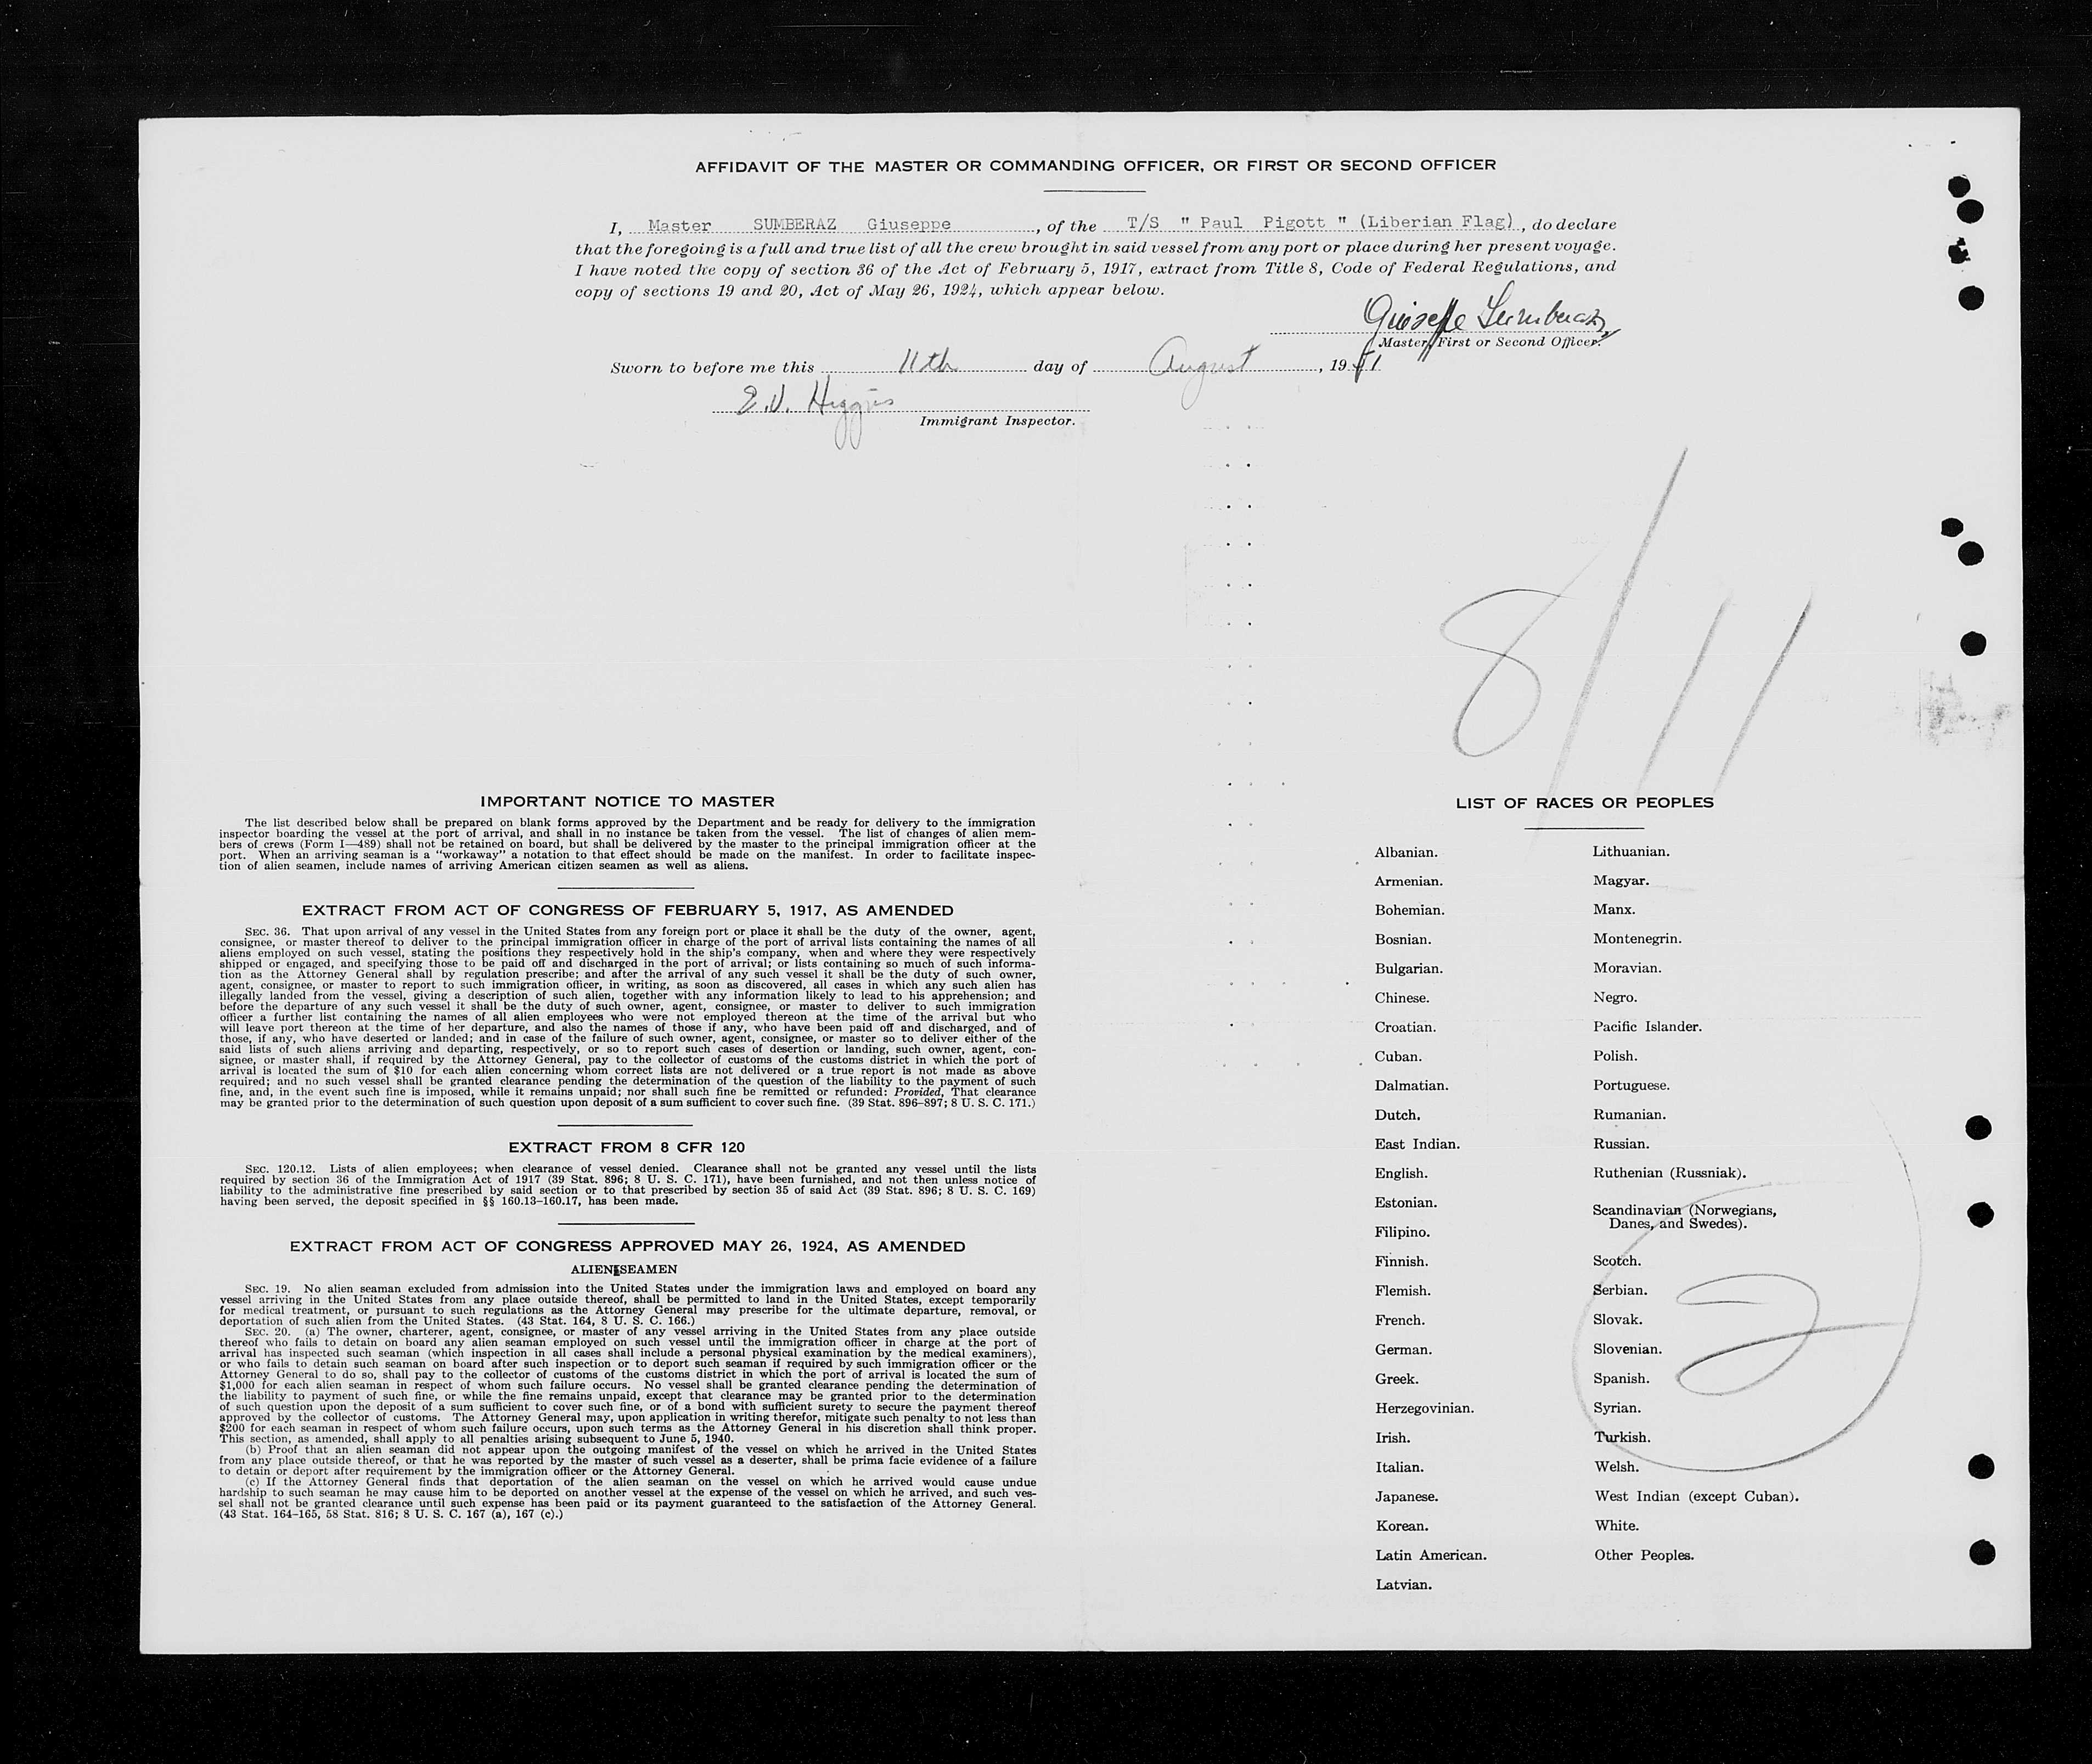 AFFIDAVIT OF THE MASTER OR COMMANDING OFFICER, OR FIRST OR SECOND OFFICER
I, Master SUMBERAZ Giuseppe, of the T/S " Paul Pigott " (Liberian Flag), do declare
that the foregoing is a full and true list of all the crew brought in said vessel from any port or place during her present voyage.
I have noted the copy of section 36 of the Act of February 5, 1917, extract from Title 8, Code of Federal Regulations, and
copy of sections 19 and 20, Act of May 26, 1924, which appear below.
Giuseppe Sumberaz
Master, First or Second Officer.
Sworn to before me this 11th day of August, 1951
E.V. Higgins
Immigrant Inspector.
8/11
IMPORTANT NOTICE TO MASTER
The list described below shall be prepared on blank forms approved by the Department and be ready for delivery to the immigration
inspector boarding the vessel at the port of arrival, and shall in no instance be taken from the vessel. The list of changes of alien mem-
bers of crews (Form I—489) shall not be retained on board, but shall be delivered by the master to the principal immigration officer at the
port. When an arriving seaman is a "workaway" a notation to that effect should be made on the manifest. In order to facilitate inspec-
tion of alien seamen, include names of arriving American citizen seamen as well as aliens.
EXTRACT FROM ACT OF CONGRESS OF FEBRUARY 5, 1917, AS AMENDED
SEC. 36. That upon arrival of any vessel in the United States from any foreign port or place it shall be the duty of the owner, agent,
consignee, or master thereof to deliver to the principal immigration officer in charge of the port of arrival lists containing the names of all
aliens employed on such vessel, stating the positions they respectively hold in the ship's company, when and where they were respectively
shipped or engaged, and specifying those to be paid off and discharged in the port of arrival; or lists containing so much of such informa-
tion as the Attorney General shall by regulation prescribe; and after the arrival of any such vessel it shall be the duty of such owner,
agent, consignee, or master to report to such immigration officer, in writing, as soon as discovered, all cases in which any such alien has
illegally landed from the vessel, giving a description of such alien, together with any information likely to lead to his apprehension; and
before the departure of any such vessel it shall be the duty of such owner, agent, consignee, or master to deliver to such immigration
officer a further list containing the names of all alien employees who were not employed thereon at the time of the arrival but who
will leave port thereon at the time of her departure, and also the names of those if any, who have been paid off and discharged, and of
those, if any, who have deserted or landed; and in case of the failure of such owner, agent, consignee, or master so to deliver either of the
said lists of such aliens arriving and departing, respectively, or so to report such cases of desertion or landing, such owner, agent, con-
signee, or master shall, if required by the Attorney General, pay to the collector of customs of the customs district in which the port of
arrival is located the sum of $10 for each alien concerning whom correct lists are not delivered or a true report is not made as above
required; and no such vessel shall be granted clearance pending the determination of the question of the liability to the payment of such
fine, and, in the event such fine is imposed, while it remains unpaid; nor shall such fine be remitted or refunded: Provided, That clearance
may be granted prior to the determination of such question upon deposit of a sum sufficient to cover such fine. (39 Stat. 896–897; 8 U. S. C. 171.)
EXTRACT FROM 8 CFR 120
SEC. 120.12. Lists of alien employees; when clearance of vessel denied. Clearance shall not be granted any vessel until the lists
required by section 36 of the Immigration Act of 1917 (39 Stat. 896; 8 U. S. C. 171), have been furnished, and not then unless notice of
liability to the administrative fine prescribed by said section or to that prescribed by section 35 of said Act (39 Stat. 896; 8 U. S. C. 169)
having been served, the deposit specified in §§ 160.13–160.17, has been made.
EXTRACT FROM ACT OF CONGRESS APPROVED MAY 26, 1924, AS AMENDED
ALIEN SEAMEN
SEC. 19. No alien seaman excluded from admission into the United States under the immigration laws and employed on board any
vessel arriving in the United States from any place outside thereof, shall be permitted to land in the United States, except temporarily
for medical treatment, or pursuant to such regulations as the Attorney General may prescribe for the ultimate departure, removal, or
deportation of such alien from the United States. (43 Stat. 164, 8 U. S. C. 166.)
SEC. 20. (a) The owner, charterer, agent, consignee, or master of any vessel arriving in the United States from any place outside
thereof who fails to detain on board any alien seaman employed on such vessel until the immigration officer in charge at the port of
arrival has inspected such seaman (which inspection in all cases shall include a personal physical examination by the medical examiners),
or who fails to detain such seaman on board after such inspection or to deport such seaman if required by such immigration officer or the
Attorney General to do so, shall pay to the collector of customs of the customs district in which the port of arrival is located the sum of
$1,000 for each alien seaman in respect of whom such failure occurs. No vessel shall be granted clearance pending the determination of
the liability to payment of such fine, or while the fine remains unpaid, except that clearance may be granted prior to the determination
of such question upon the deposit of a sum sufficient to cover such fine, or of a bond with sufficient surety to secure the payment thereof
approved by the collector of customs. The Attorney General may, upon application in writing therefor, mitigate such penalty to not less than
$200 for each seaman in respect of whom such failure occurs, upon such terms as the Attorney General in his discretion shall think proper.
This section, as amended, shall apply to all penalties arising subsequent to June 5, 1940.
(b) Proof that an alien seaman did not appear upon the outgoing manifest of the vessel on which he arrived in the United States
from any place outside thereof, or that he was reported by the master of such vessel as a deserter, shall be prima facie evidence of a failure
to detain or deport after requirement by the immigration officer or the Attorney General.
(c) If the Attorney General finds that deportation of the alien seaman on the vessel on which he arrived would cause undue
hardship to such seaman he may cause him to be deported on another vessel at the expense of the vessel on which he arrived, and such ves-
sel shall not be granted clearance until such expense has been paid or its payment guaranteed to the satisfaction of the Attorney General.
(43 Stat. 164–165, 58 Stat. 816; 8 U. S. C. 167 (a), 167 (c).)
LIST OF RACES OR PEOPLES
Albanian.
Armenian.
Bohemian.
Bosnian.
Bulgarian.
Chinese.
Croatian.
Cuban.
Dalmatian.
Dutch.
East Indian.
English.
Estonian.
Filipino.
Finnish.
Flemish.
French.
German.
Greek.
Herzegovinian.
Irish.
Italian.
Japanese.
Korean.
Latin American.
Latvian.
Lithuanian.
Magyar.
Manx.
Montenegrin.
Moravian.
Negro.
Pacific Islander.
Polish.
Portuguese.
Rumanian.
Russian.
Ruthenian (Russniak).
Scandinavian (Norwegians,
Danes, and Swedes).
Scotch.
Serbian.
Slovak.
Slovenian.
Spanish.
Syrian.
Turkish.
Welsh.
West Indian (except Cuban).
White.
Other Peoples.
2